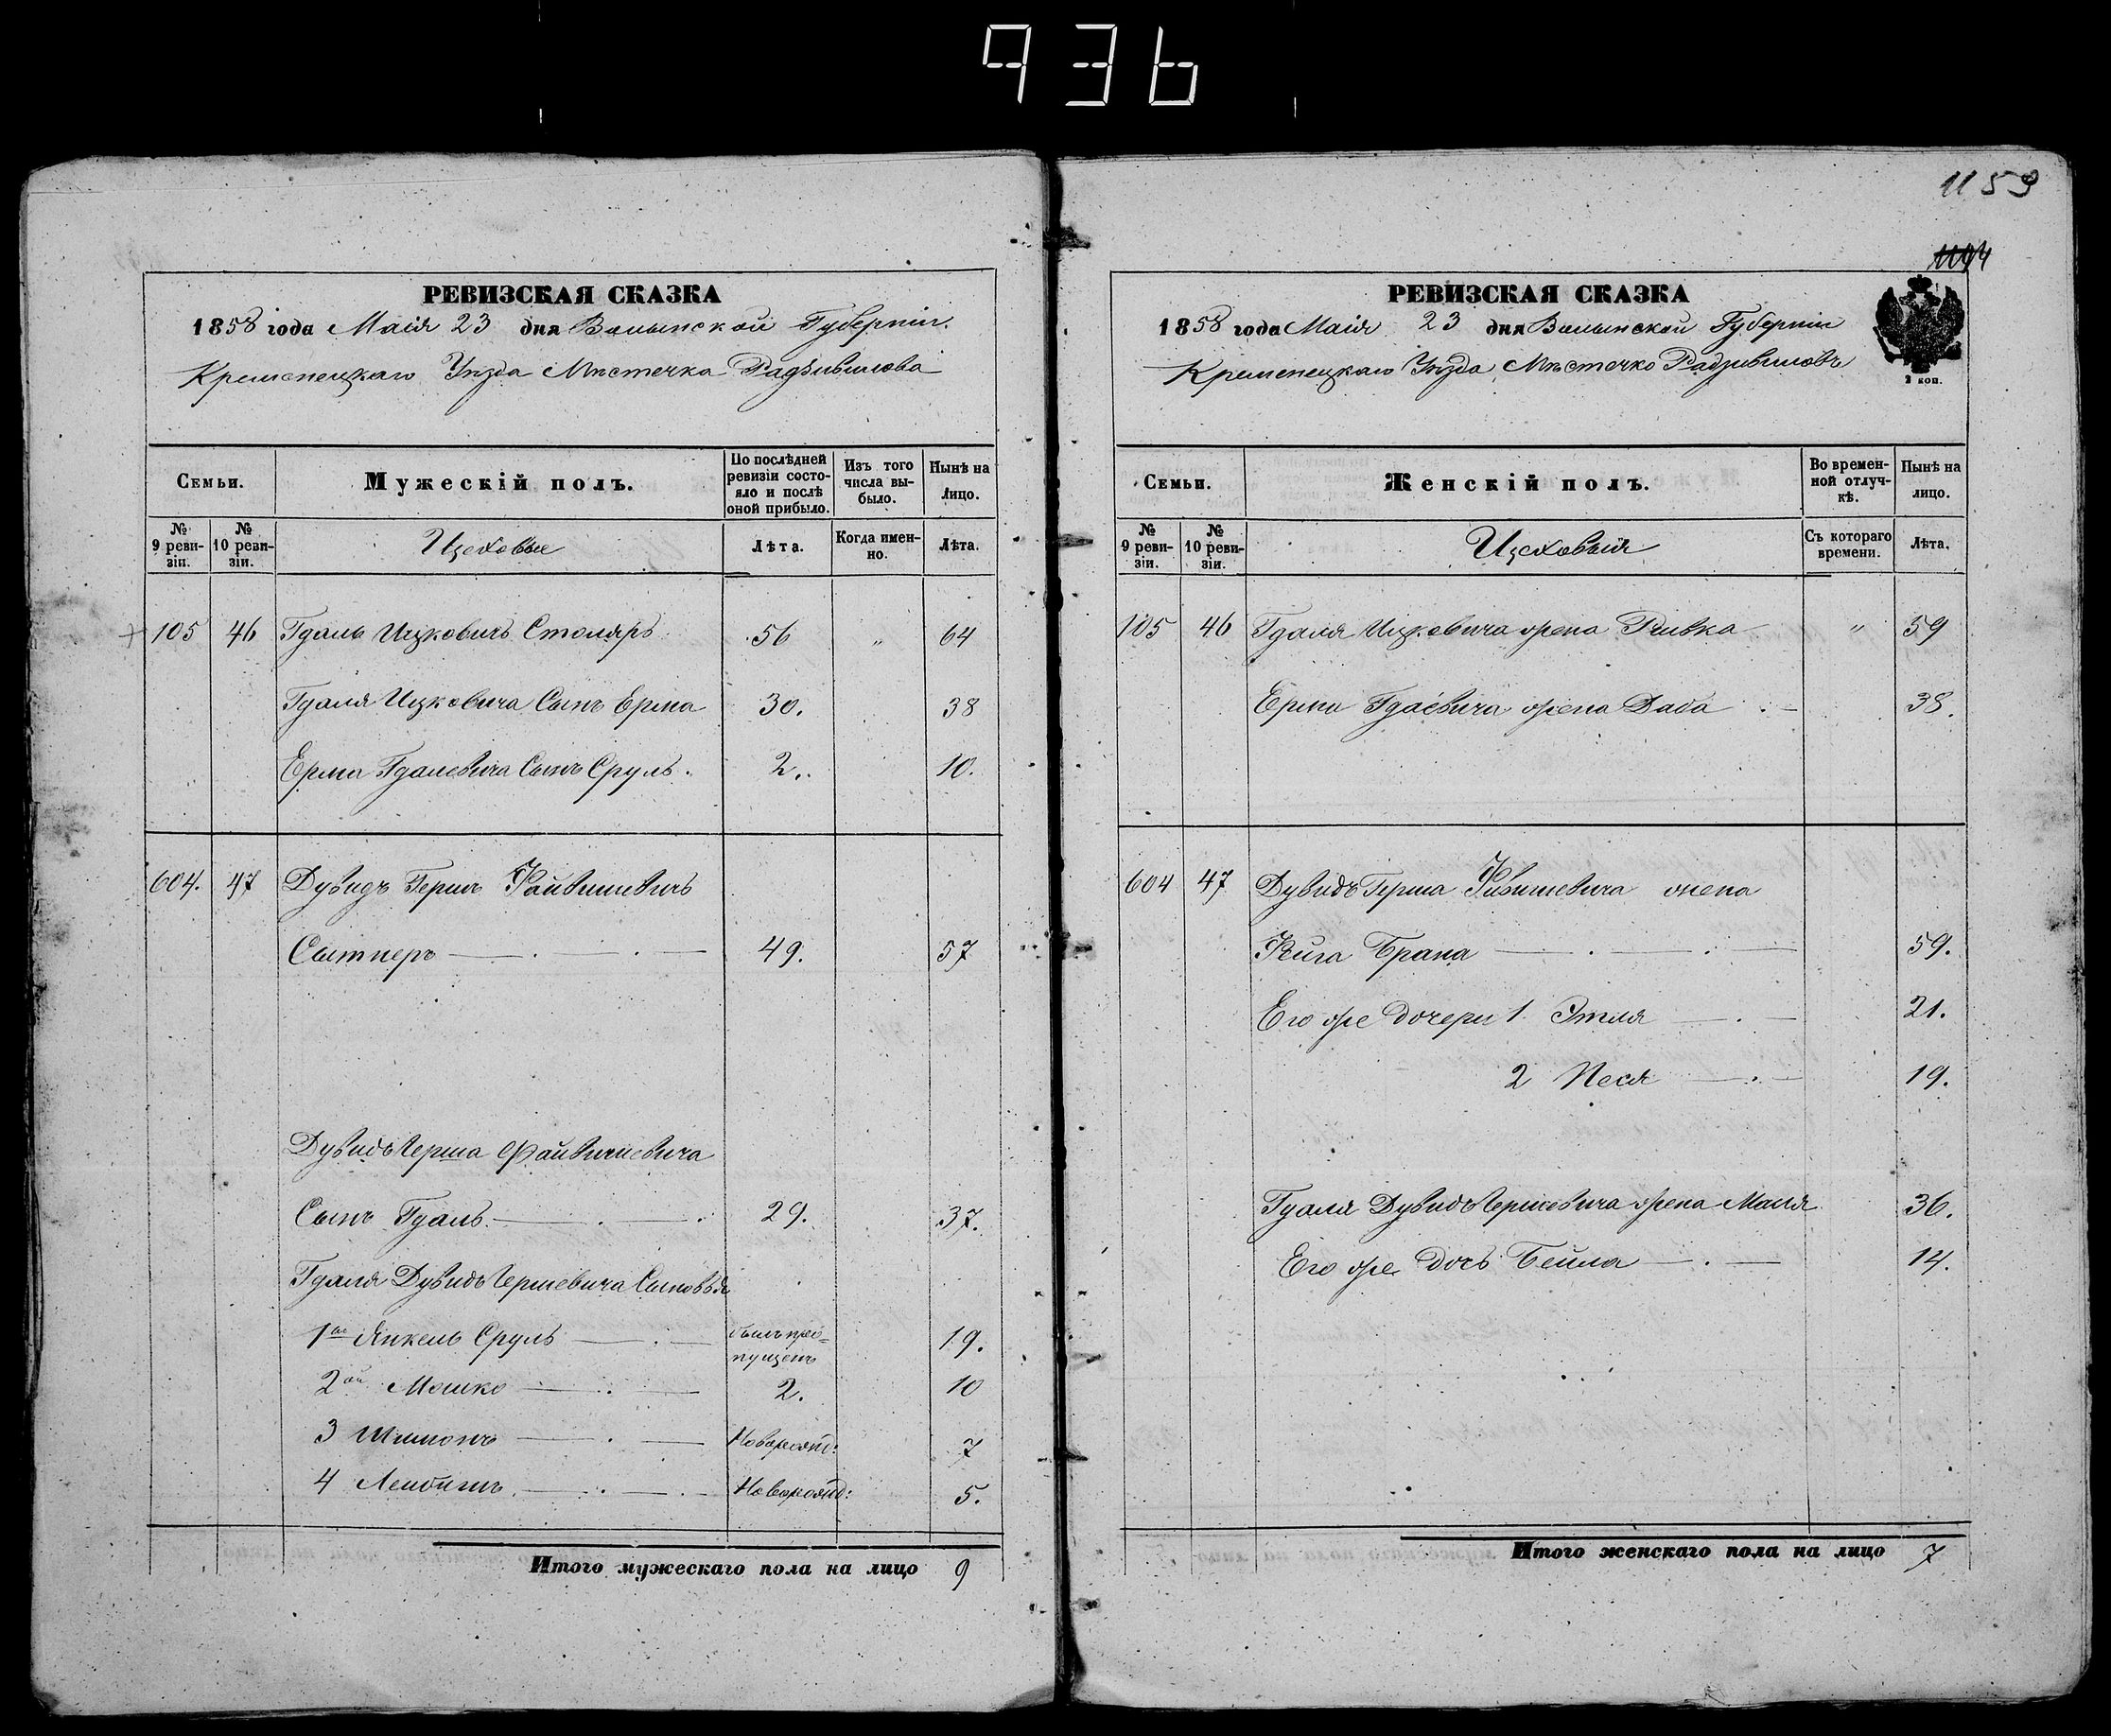 936
РЕВИЗСКАЯ СКАЗКА
1858 года Маія 23 дня Волынской Губерніи.
Кременецкаго Уѣзда Мѣстечка Радзивилова
Семьи.
Мужескій полъ.
По послѣдней ревизіи состояло и послѣ оной прибыло.
Изъ того числа выбыло.
Нынѣ на лицо.
№ 9 ревизіи.
№ 10 ревизіи.
Цеховые
Лѣта.
Когда именно.
Лѣта.
105 46 Гдаль Ицковичъ Столяръ 56 „ 64
Гдаля Ицковича Сынъ Ерма 30. 38
Ерма Гдалевича Сынъ Сруль. 2. 10.
604. 47 Дувидъ Гершъ Файвишевичъ
Сытнеръ 49. 57
Дувидъ Герша Файвишевича
Сынъ Гдаль 29. 37.
Гдаля Дувидъ Гершевича Сыновья
1ый Янкель Сруль былъ про=пущенъ 19.
2ой Мошко 2. 10
3 Шимонъ Новорожд: 7
4 Лейбишъ Новорожд: 5.
Итого мужескаго пола на лицо 9
1159
РЕВИЗСКАЯ СКАЗКА
1858 года Маія 23 дня Волынской Губерніи
Кременецкаго Уѣзда Мѣстечко Радзивиловъ
2 коп.
Семьи.
Женскій полъ.
Во временной отлучкѣ.
Нынѣ на лицо.
№ 9 ревизіи.
№ 10 ревизіи.
Цеховыя
Съ котораго времени.
Лѣта.
105 46 Гдаля Ицковича жена Ривка „ 59
Ерми Гдаевича жена Даба 38.
604 47 Дувидъ Герша Фивишевича жена
Фейга Брана 59.
Его же дочери 1 Этля 21.
2 Песя 19.
Гдаля Дувидъ Гершовича жена Маля 36.
Его же дочь Бейла 14.
Итого женскаго пола на лицо 7